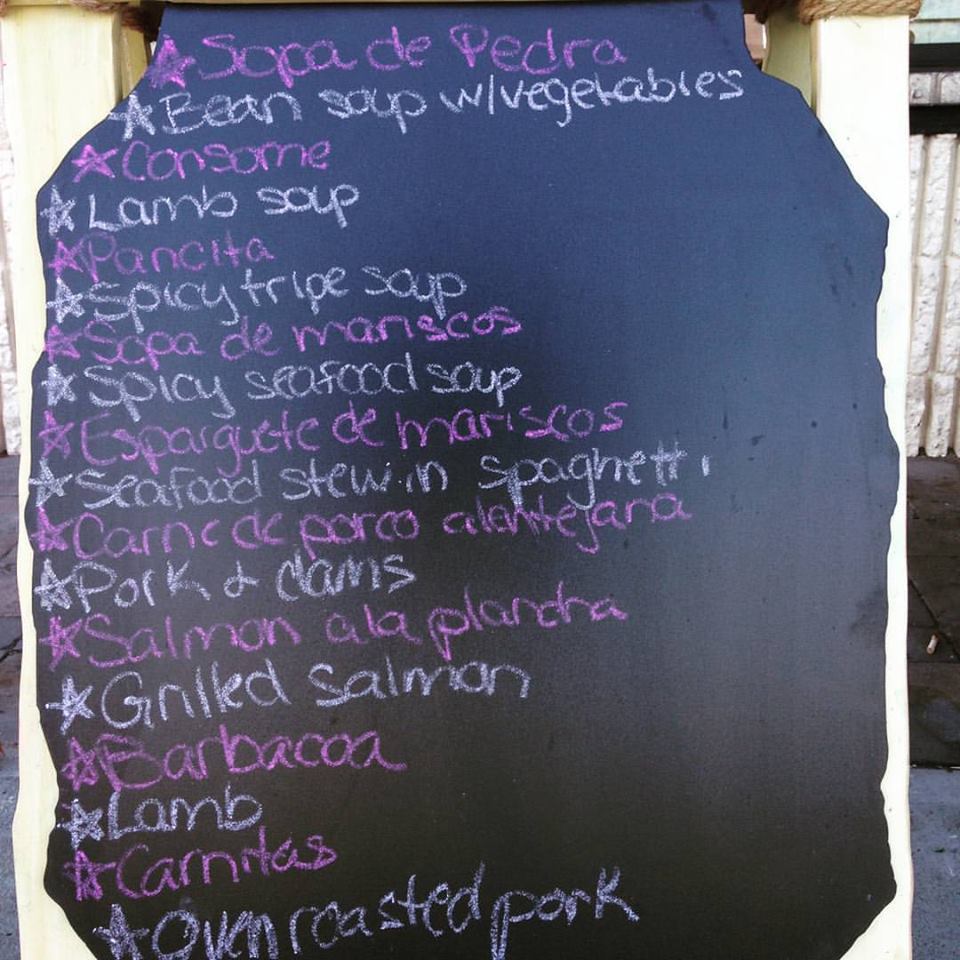 Sopa de Pedra
Bean soup w/vegetables
Consome
Lamb soup
Pancita
Spicy tripe soup
Sopa de mariscos
Spicy seafood soup
Esparguete de mariscos
Seafood stew in spaghetti
Carne de porco alentejana
Pork & clams
Salmon a la plancha
Grilled Salmon
Barbacoa
Lamb
Carnitas
Oven roasted pork